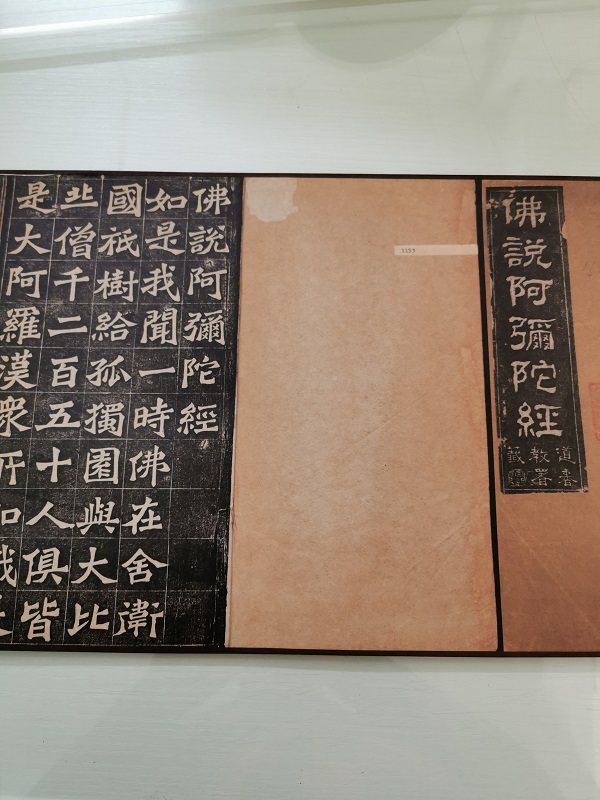 佛說阿彌陀經
教署
佛說阿彌陀經
如是我聞一時佛在舍衛
國祇樹給孤獨園與大比
丘僧千二百五十人俱皆
是大阿羅漢眾所知